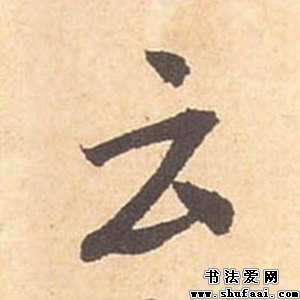 云
书法爱网
www.shufaai.com